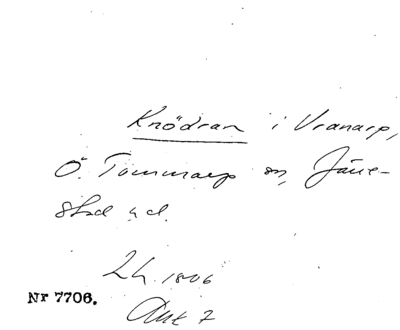 Knödran i Vranarp,
Ö. Tommarp sn, Järre-
stad hd.
Lh. 1806
Nr 7706.
Akt 7